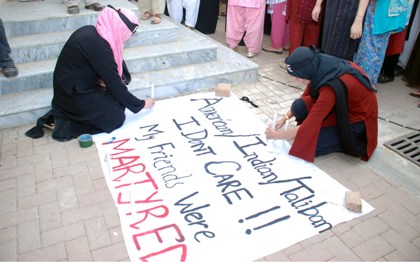 American/Indian/Taliban
I DNT CARE!!
My Friends Were
MARTYRED